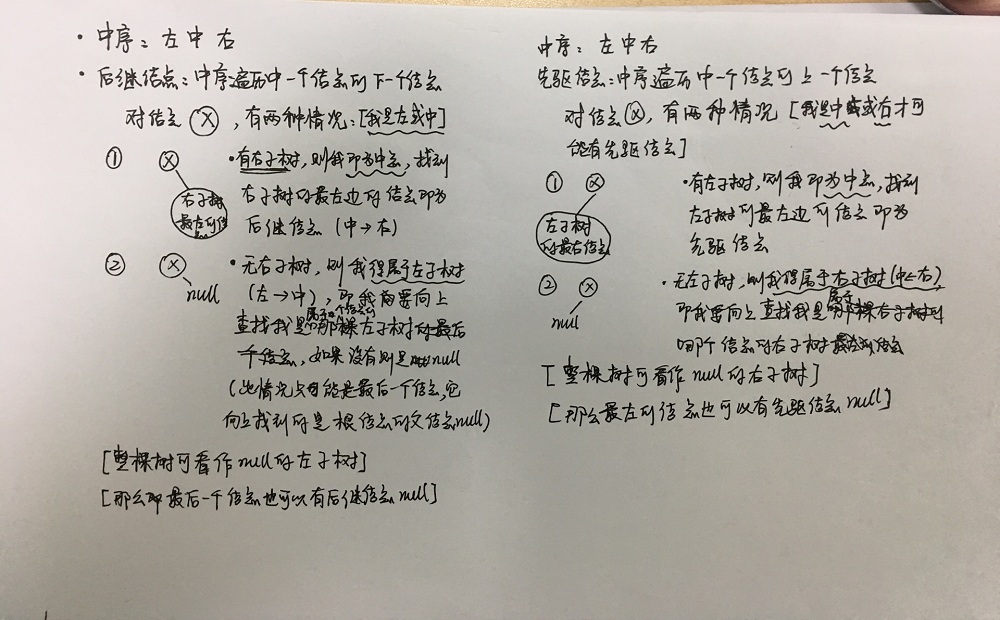 · 中序：左中右
· 后继结点：中序遍历中一个结点的下一个结点
对结点 X，有两种情况：[我是左或中]
① X
· 有右子树，则我即为中点，找到
右子树的最左边的结点即为
后继结点（中→右）
右子树
最左的结点
② X
null
· 无右子树，则我得属于左子树
（左→中），即我需要向上
查找我是属于哪个结点的
那棵左子树的最后
一个结点，如果没有则是null
（此情况只可能是最后一个结点，它
向上找到的是根结点的父结点null）
[整棵树可看作null的左子树]
[那么即最后一个结点也可以有后继结点null]
中序：左中右
先驱结点：中序遍历中一个结点的上一个结点
对结点 X，有两种情况 [我是中或右才可
能有先驱结点]
① X
· 有左子树，则我即为中点，找到
左子树的最左边的结点即为
先驱结点
左子树
的最右结点
② X
null
· 无左子树，则我得属于右子树（中←右），
即我要向上查找我是属于那棵右子树的
哪个结点的右子树最左的结点
[整棵树可看作null的右子树]
[那么最左的结点也可以有先驱结点null]